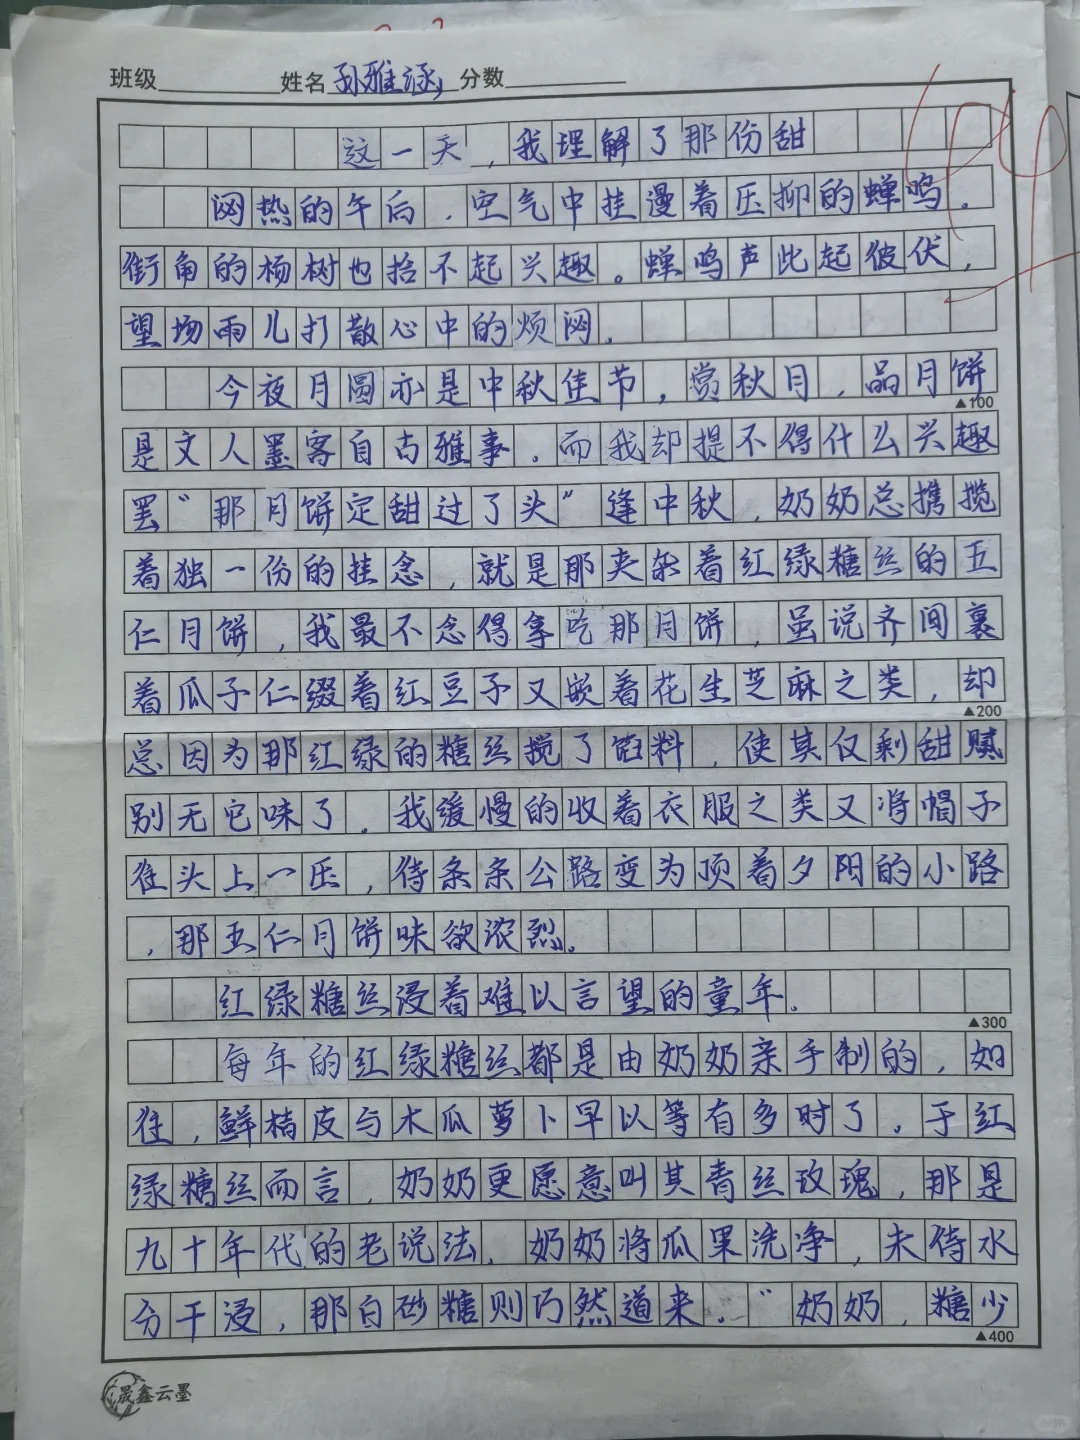 班级 姓名 孙雅涵 分数
这一天，我理解了那份甜
闷热的午后，空气中挂漫着压抑的蝉鸣。
街角的杨树也抬不起兴趣。蝉鸣声此起彼伏，
望场雨儿打散心中的烦闷。
今夜月圆亦是中秋佳节，赏秋月，品月饼
▲100
是文人墨客自古雅事。而我却提不得什么兴趣
罢“那月饼定甜过了头”逢中秋，奶奶总携揽
着独一份的挂念，就是那夹杂着红绿糖丝的五
仁月饼，我最不念得拿吃那月饼，虽说齐间裹
着瓜子仁缀着红豆予又嵌着花生芝麻之类，却
▲200
总因为那红绿的糖丝搅了馅料，使其仅剩甜腻
别无它味了。我缓慢的收着衣服之类又将帽子
往头上一压，待条条公路变为顶着夕阳的小路
，那五仁月饼味欲浓烈。
红绿糖丝浸着难以言望的童年。
▲300
每年的红绿糖丝都是由奶奶亲手制的，如
往，鲜桔皮与木瓜萝卜早以等有多时了。于红
绿糖丝而言，奶奶更愿意叫其青丝玫瑰，那是
九十年代的老说法。奶奶将瓜果洗净，未待水
分干浸，那白砂糖则巧然道来。“奶奶，糖少
▲400
晟鑫云墨